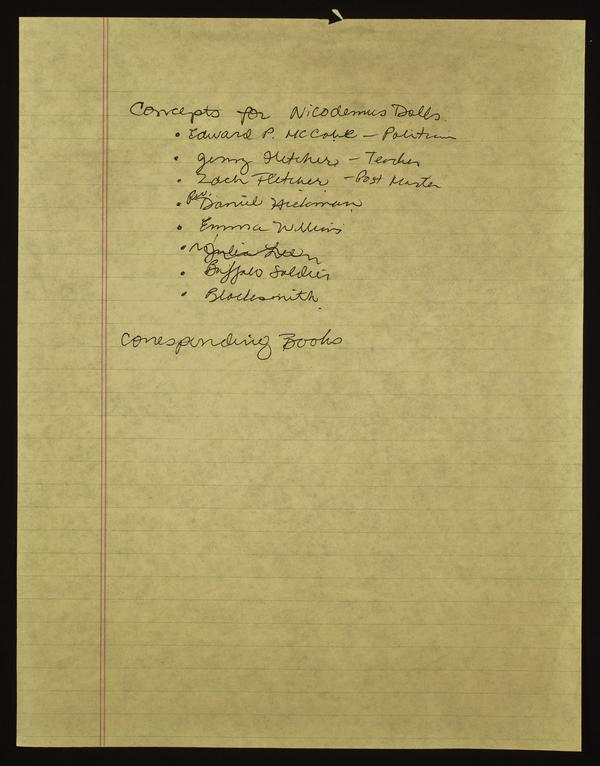 Concepts for Nicodemus Dolls.
• Edward P. McCabe – Politician
• Jenny Fletcher – Teacher
• Zach Fletcher – Post Master
• Rev. Daniel Hickman
• Emma Williams
• Julia Lee
• Buffalo Soldier
• Blacksmith
Coresponding Books